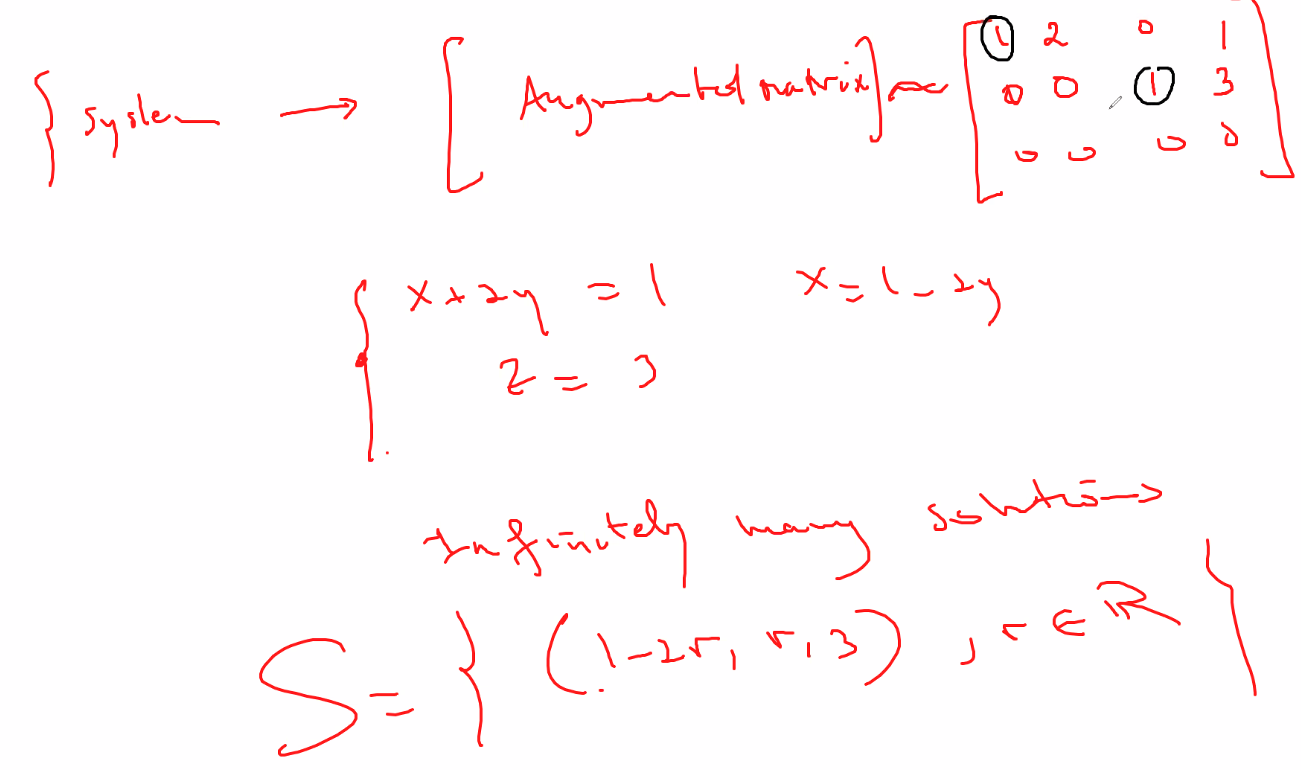 { System → [ Augmented matrix ] ~ [ 1 2 0 1
0 0 1 3
0 0 0 0 ]
{ x + 2y = 1 x = 1 - 2y
z = 3
Infinitely many solution
S = { (1-2r, r, 3) , r ∈ ℝ }